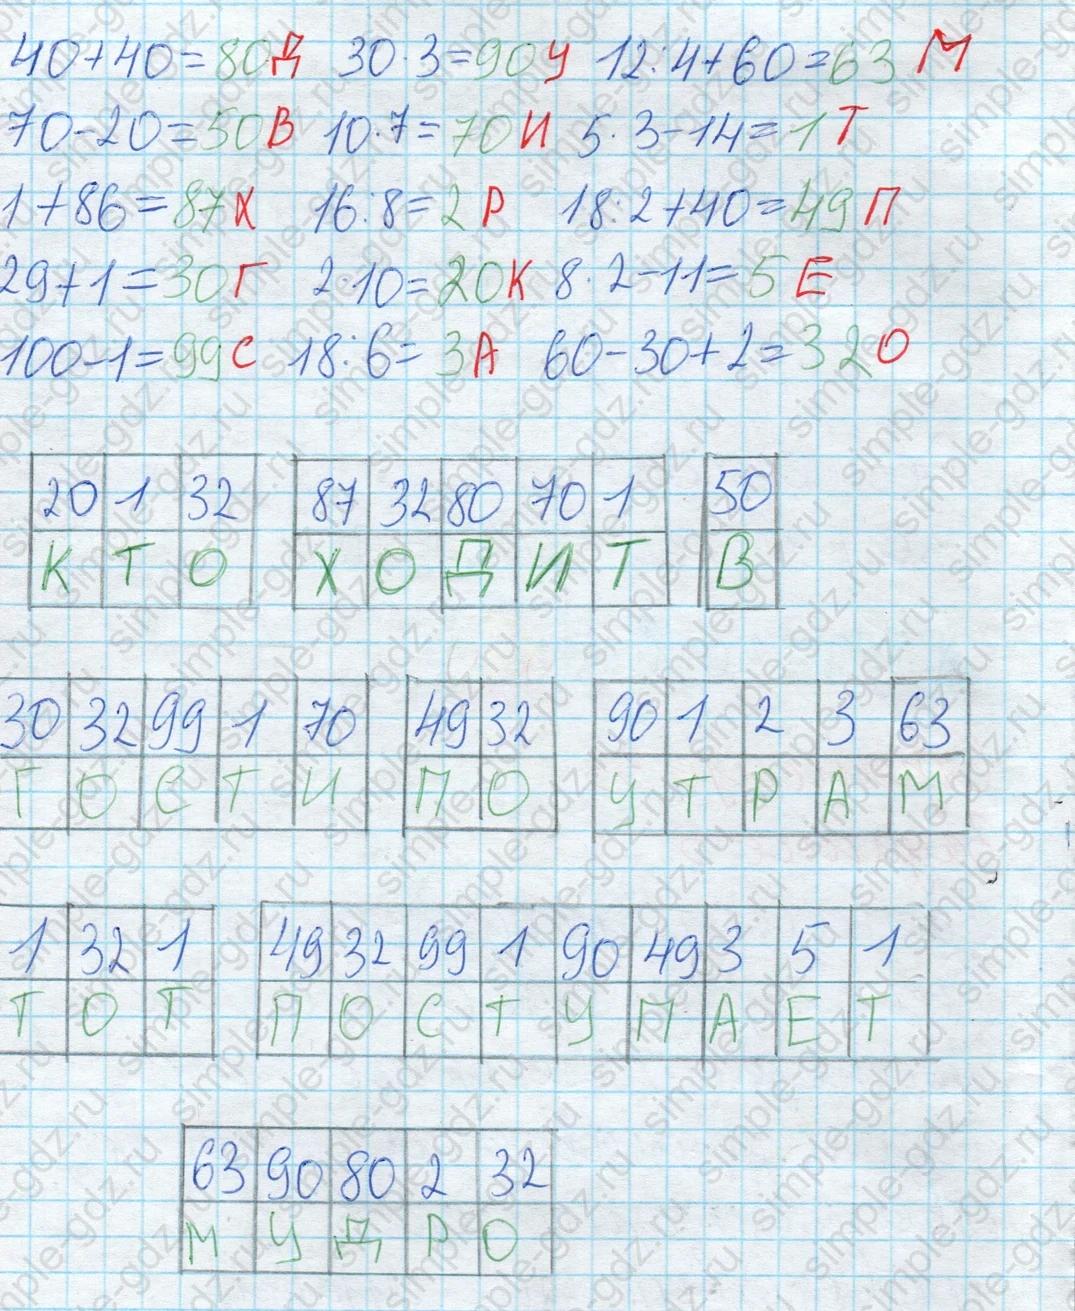 40+40=80Д 30·3=90У 12:4+60=63 М
70-20=50В 10·7=70И 5·3-14=1Т
1+86=87Х 16:8=2Р 18:2+40=49П
29+1=30Г 2·10=20К 8·2-11=5Е
100-1=99С 18:6=3А 60-30+2=32О
20 1 32 87 32 80 70 1 50
К Т О Х О Д И Т В
30 32 99 1 70 49 32 90 1 2 3 63
Г О С Т И П О У Т Р А М
1 32 1 49 32 99 1 90 49 3 5 1
Т О Т П О С Т У П А Е Т
63 90 80 2 32
М У Д Р О
simple-gdz.ru